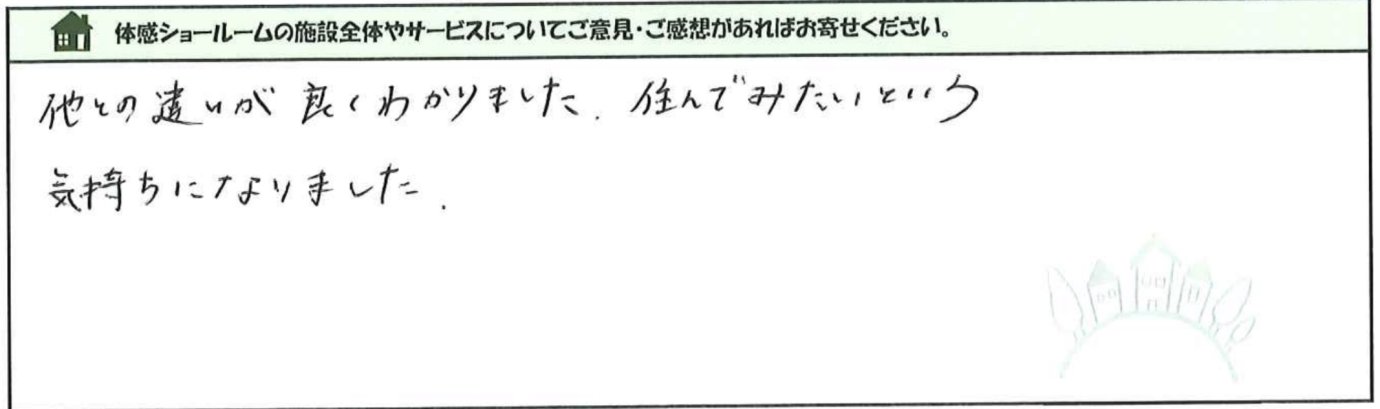 体感ショールームの施設全体やサービスについてご意見・ご感想があればお寄せください。
他との違いが良くわかりました. 住んでみたいという
気持ちになりました.